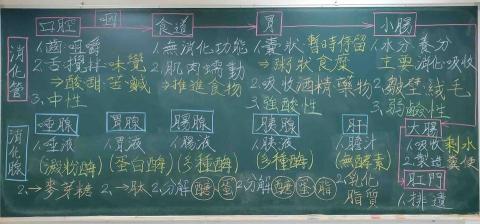 口腔 咽 食道 胃 小腸
消化管
1.齒:咀嚼
2.舌:攪拌、味覺
⇒酸甜苦鹹
3.中性
1.無消化功能
2.肌肉蠕動
⇒推進食物
1.囊狀:暫時停留
⇒粥狀食糜
2.吸收酒精、藥物
3.強酸性
1.水分、養分
主要消化、吸收
2.皺壁、絨毛
3.弱鹼性
消化腺
唾腺
1.唾液
(澱粉酶)
2.→麥芽糖
胃腺
1.胃液
(蛋白酶)
2.→肽
腸腺
1.腸液
(多種酶)
2.分解醣 蛋
胰腺
1.胰液
(多種酶)
2.分解醣蛋脂
肝
1.膽汁
(無酵素)
2.乳化
脂質
大腸
1.吸收剩水
2.製造糞便
肛門
1.排遺